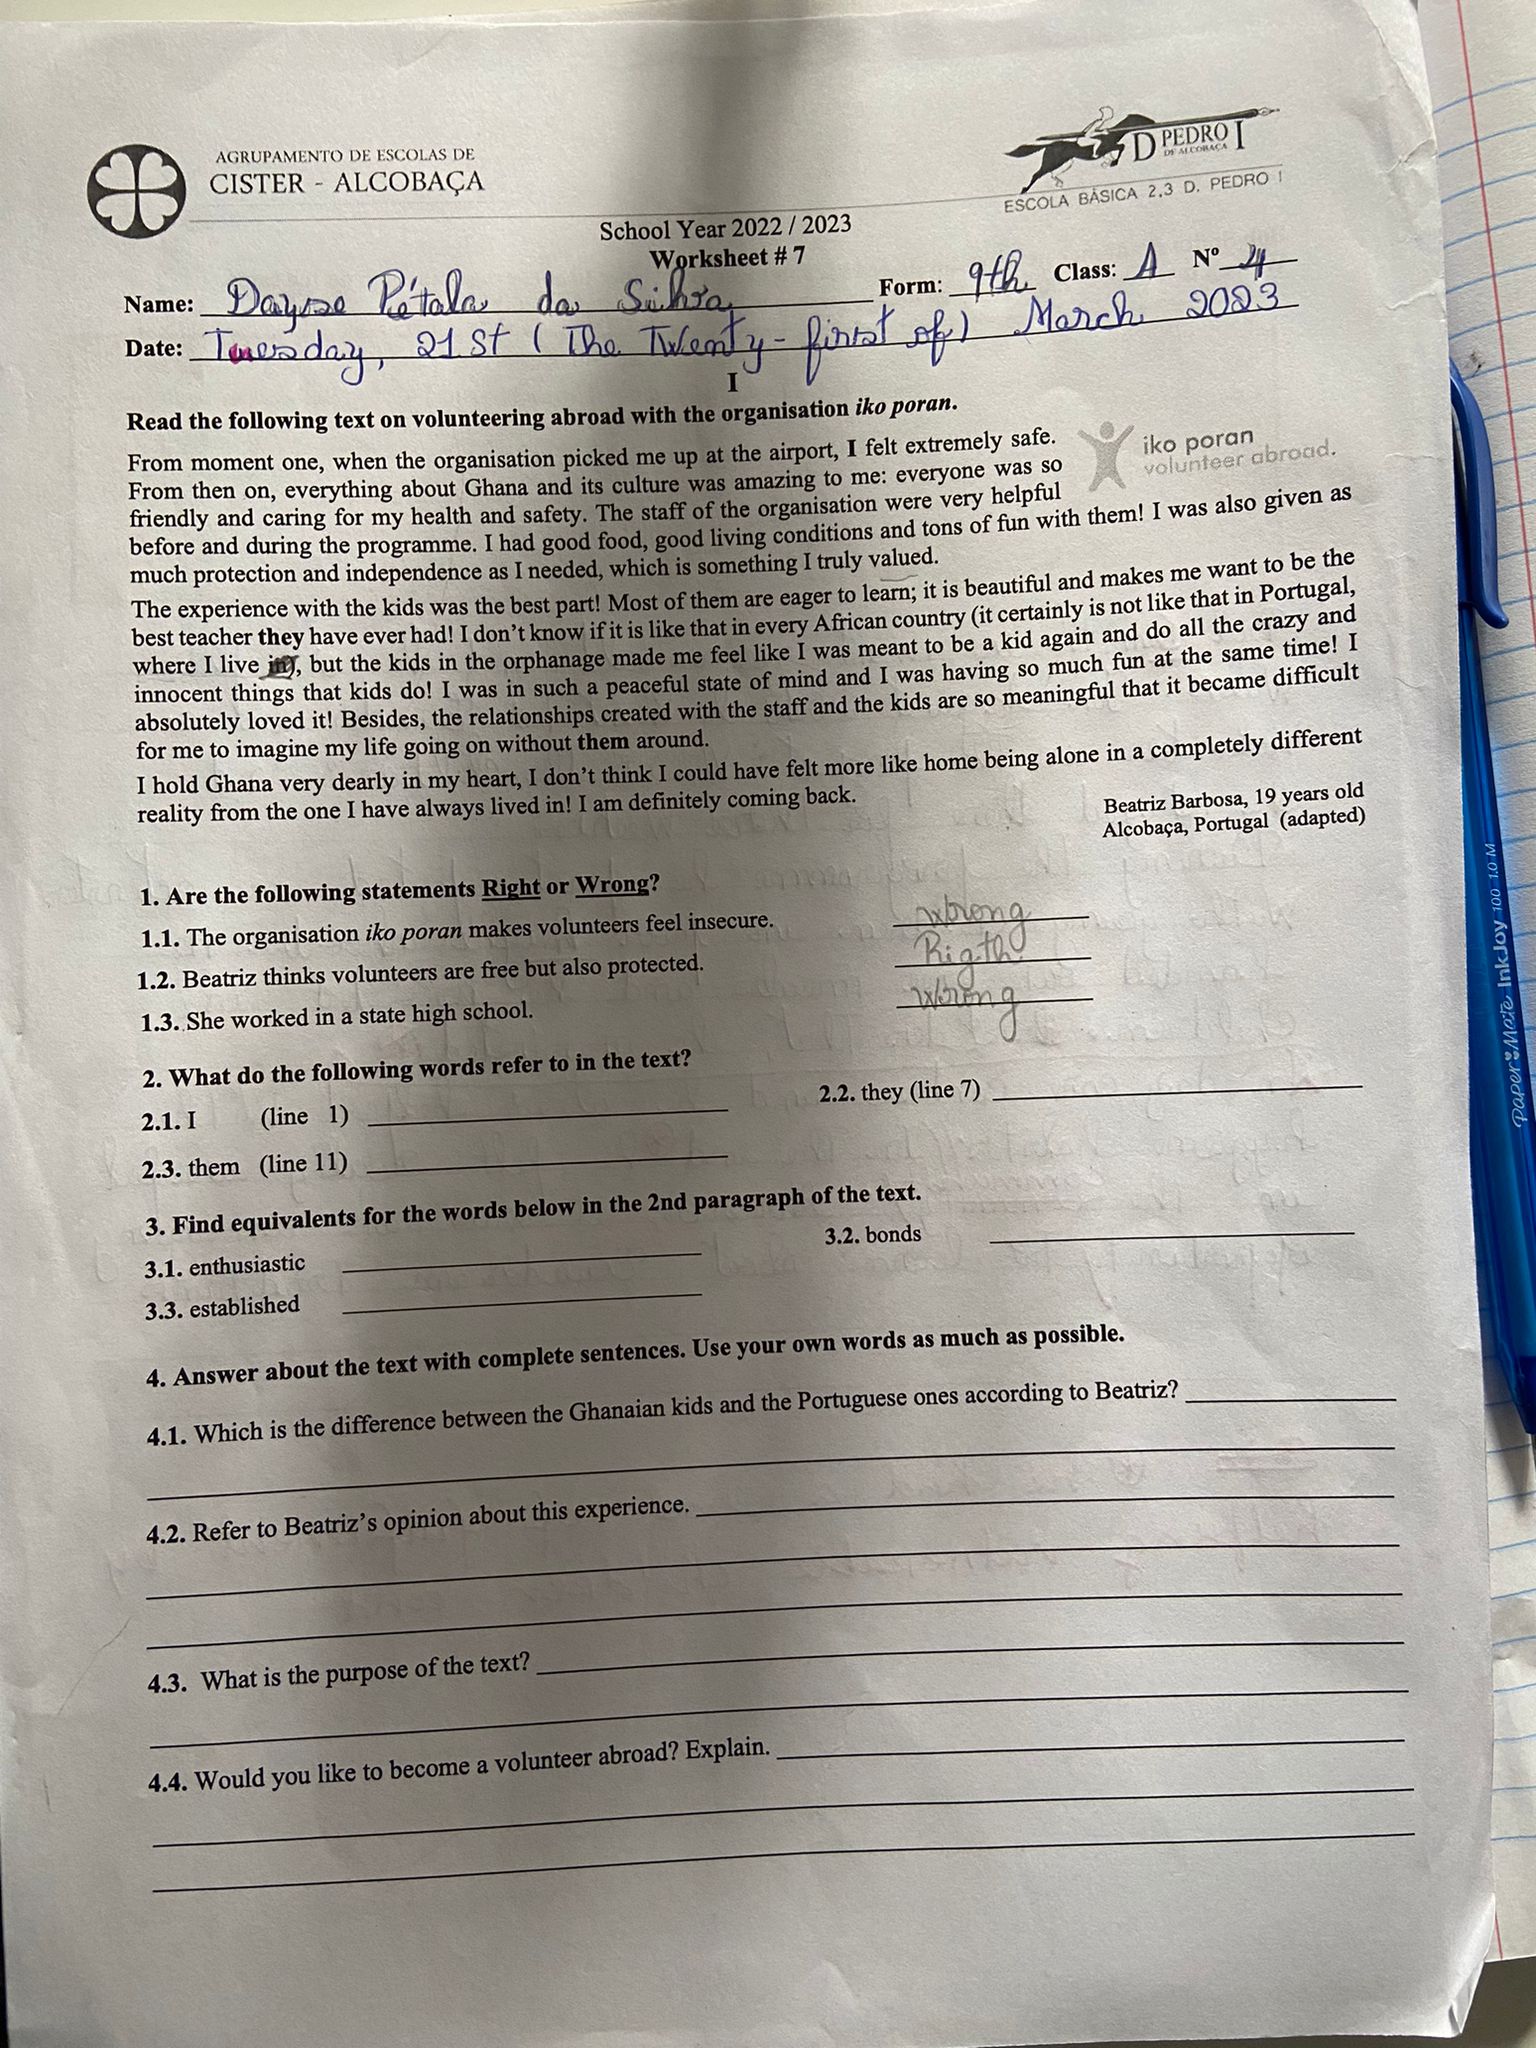 AGRUPAMENTO DE ESCOLAS DE
CISTER - ALCOBAÇA
D PEDRO I
DE ALCOBAÇA
ESCOLA BÁSICA 2,3 D. PEDRO I
School Year 2022 / 2023
Worksheet # 7
Name: Dayse Pétala da Silva Form: 9th Class: A Nº 4
Date: Tuesday, 21st (The Twenty-first of) March 2023
I
Read the following text on volunteering abroad with the organisation iko poran.
iko poran
volunteer abroad.
From moment one, when the organisation picked me up at the airport, I felt extremely safe.
From then on, everything about Ghana and its culture was amazing to me: everyone was so
friendly and caring for my health and safety. The staff of the organisation were very helpful
before and during the programme. I had good food, good living conditions and tons of fun with them! I was also given as
much protection and independence as I needed, which is something I truly valued.
The experience with the kids was the best part! Most of them are eager to learn; it is beautiful and makes me want to be the
best teacher they have ever had! I don't know if it is like that in every African country (it certainly is not like that in Portugal,
where I live in), but the kids in the orphanage made me feel like I was meant to be a kid again and do all the crazy and
innocent things that kids do! I was in such a peaceful state of mind and I was having so much fun at the same time! I
absolutely loved it! Besides, the relationships created with the staff and the kids are so meaningful that it became difficult
for me to imagine my life going on without them around.
I hold Ghana very dearly in my heart, I don't think I could have felt more like home being alone in a completely different
reality from the one I have always lived in! I am definitely coming back.
Beatriz Barbosa, 19 years old
Alcobaça, Portugal (adapted)
1. Are the following statements Right or Wrong?
1.1. The organisation iko poran makes volunteers feel insecure. Wrong
1.2. Beatriz thinks volunteers are free but also protected. Rigth
1.3. She worked in a state high school. Wrong
2. What do the following words refer to in the text?
2.1. I (line 1) 2.2. they (line 7)
2.3. them (line 11)
3. Find equivalents for the words below in the 2nd paragraph of the text.
3.1. enthusiastic 3.2. bonds
3.3. established
4. Answer about the text with complete sentences. Use your own words as much as possible.
4.1. Which is the difference between the Ghanaian kids and the Portuguese ones according to Beatriz?
4.2. Refer to Beatriz's opinion about this experience.
4.3. What is the purpose of the text?
4.4. Would you like to become a volunteer abroad? Explain.
Paper Mate InkJoy 100 1.0 M